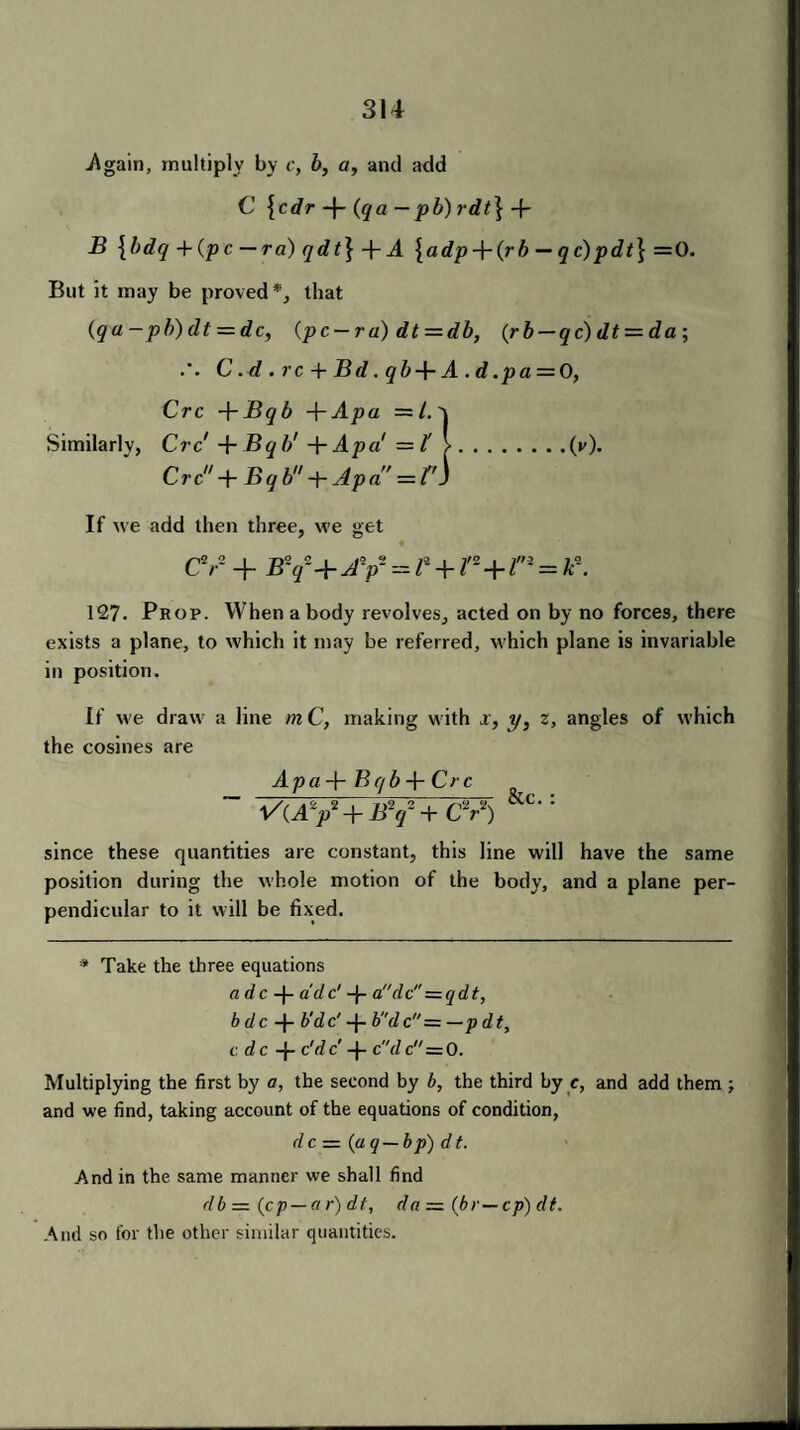 314
Again, multiply by c, b, a, and add
C {cdr + (qa − pb) rdt} +
B {bdq + (pc − ra) qdt} + A {adp + (rb − qc) pdt} = 0.
But it may be proved*, that
(qa − pb) dt = dc, (pc − ra) dt = db, (rb − qc) dt = da;
∴ C . d . rc + Bd . qb + A . d . pa = 0,
Crc + Bqb + Apa = l.
Similarly, Crc′ + Bqb′ + Apa′ = l′ } . . . . . . . . (ν).
Crc″ + Bqb″ + Apa″ = l″
If we add then three, we get
C²r² + B²q² + A²p² = l² + l′² + l″² = k².
127. Prop. When a body revolves, acted on by no forces, there
exists a plane, to which it may be referred, which plane is invariable
in position.
If we draw a line mC, making with x, y, z, angles of which
the cosines are
− (Apa + Bqb + Crc) / √(A²p² + B²q² + C²r²) &c. :
since these quantities are constant, this line will have the same
position during the whole motion of the body, and a plane per-
pendicular to it will be fixed.
* Take the three equations
adc + a′dc′ + a″dc″ = qdt,
bdc + b′dc′ + b″dc″ = −pdt,
cdc + c′dc′ + c″dc″ = 0.
Multiplying the first by a, the second by b, the third by c, and add them ;
and we find, taking account of the equations of condition,
dc = (aq − bp) dt.
And in the same manner we shall find
db = (cp − ar) dt, da = (br − cp) dt.
And so for the other similar quantities.